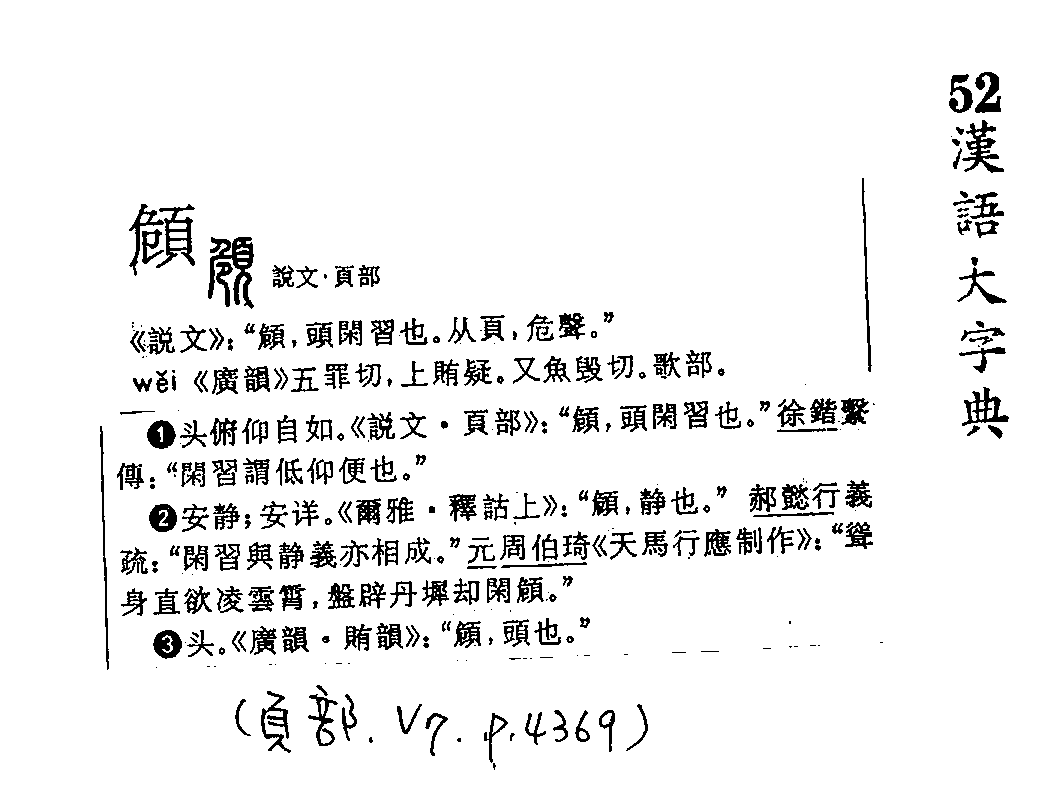 52漢語大字典
頠 頠 說文·頁部
《説文》：“頠，頭閑習也。从頁，危聲。”
wěi《廣韻》五罪切，上賄疑。又魚毁切。歌部。
❶头俯仰自如。《説文·頁部》：“頠，頭閑習也。”徐鍇繫
傳：“閑習謂低仰便也。”
❷安静；安详。《爾雅·釋詁上》：“頠，静也。”郝懿行義
疏：“閑習與静義亦相成。”元周伯琦《天馬行應制作》：“聳
身直欲凌雲霄，盤辟丹墀却閑頠。”
❸头。《廣韻·賄韻》：“頠，頭也。”
(頁部. V7. p.4369)